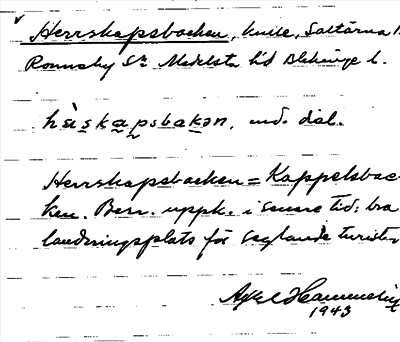 Herrskapsbacken, kulle, Saltärna
Ronneby Sn Medelsta hd Blekinge l.
hæ̀skapsbakən, md. dial.
Herrskapsbacken = Kappelsbac-
ken. Ben. uppk. i senare tid: bra
landningsplats för seglande turister
Axel
1943